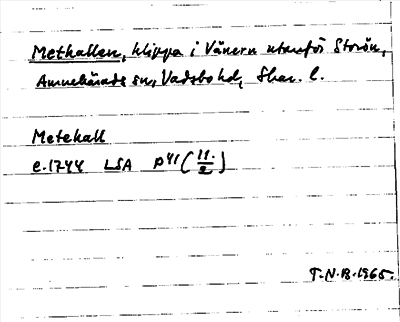 Methallen, klippa i Vänern utanför Storön,
Amnehärads sn, Vadsbo hd, Skar. l.
Metehall
e.1744 LSA P41 (11/2)
T.N.B. 1965.